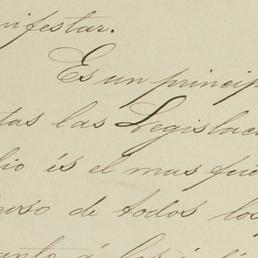 nifestar.
Es un princip
tas las Legislac
dio és el mas fue
urso de todos los